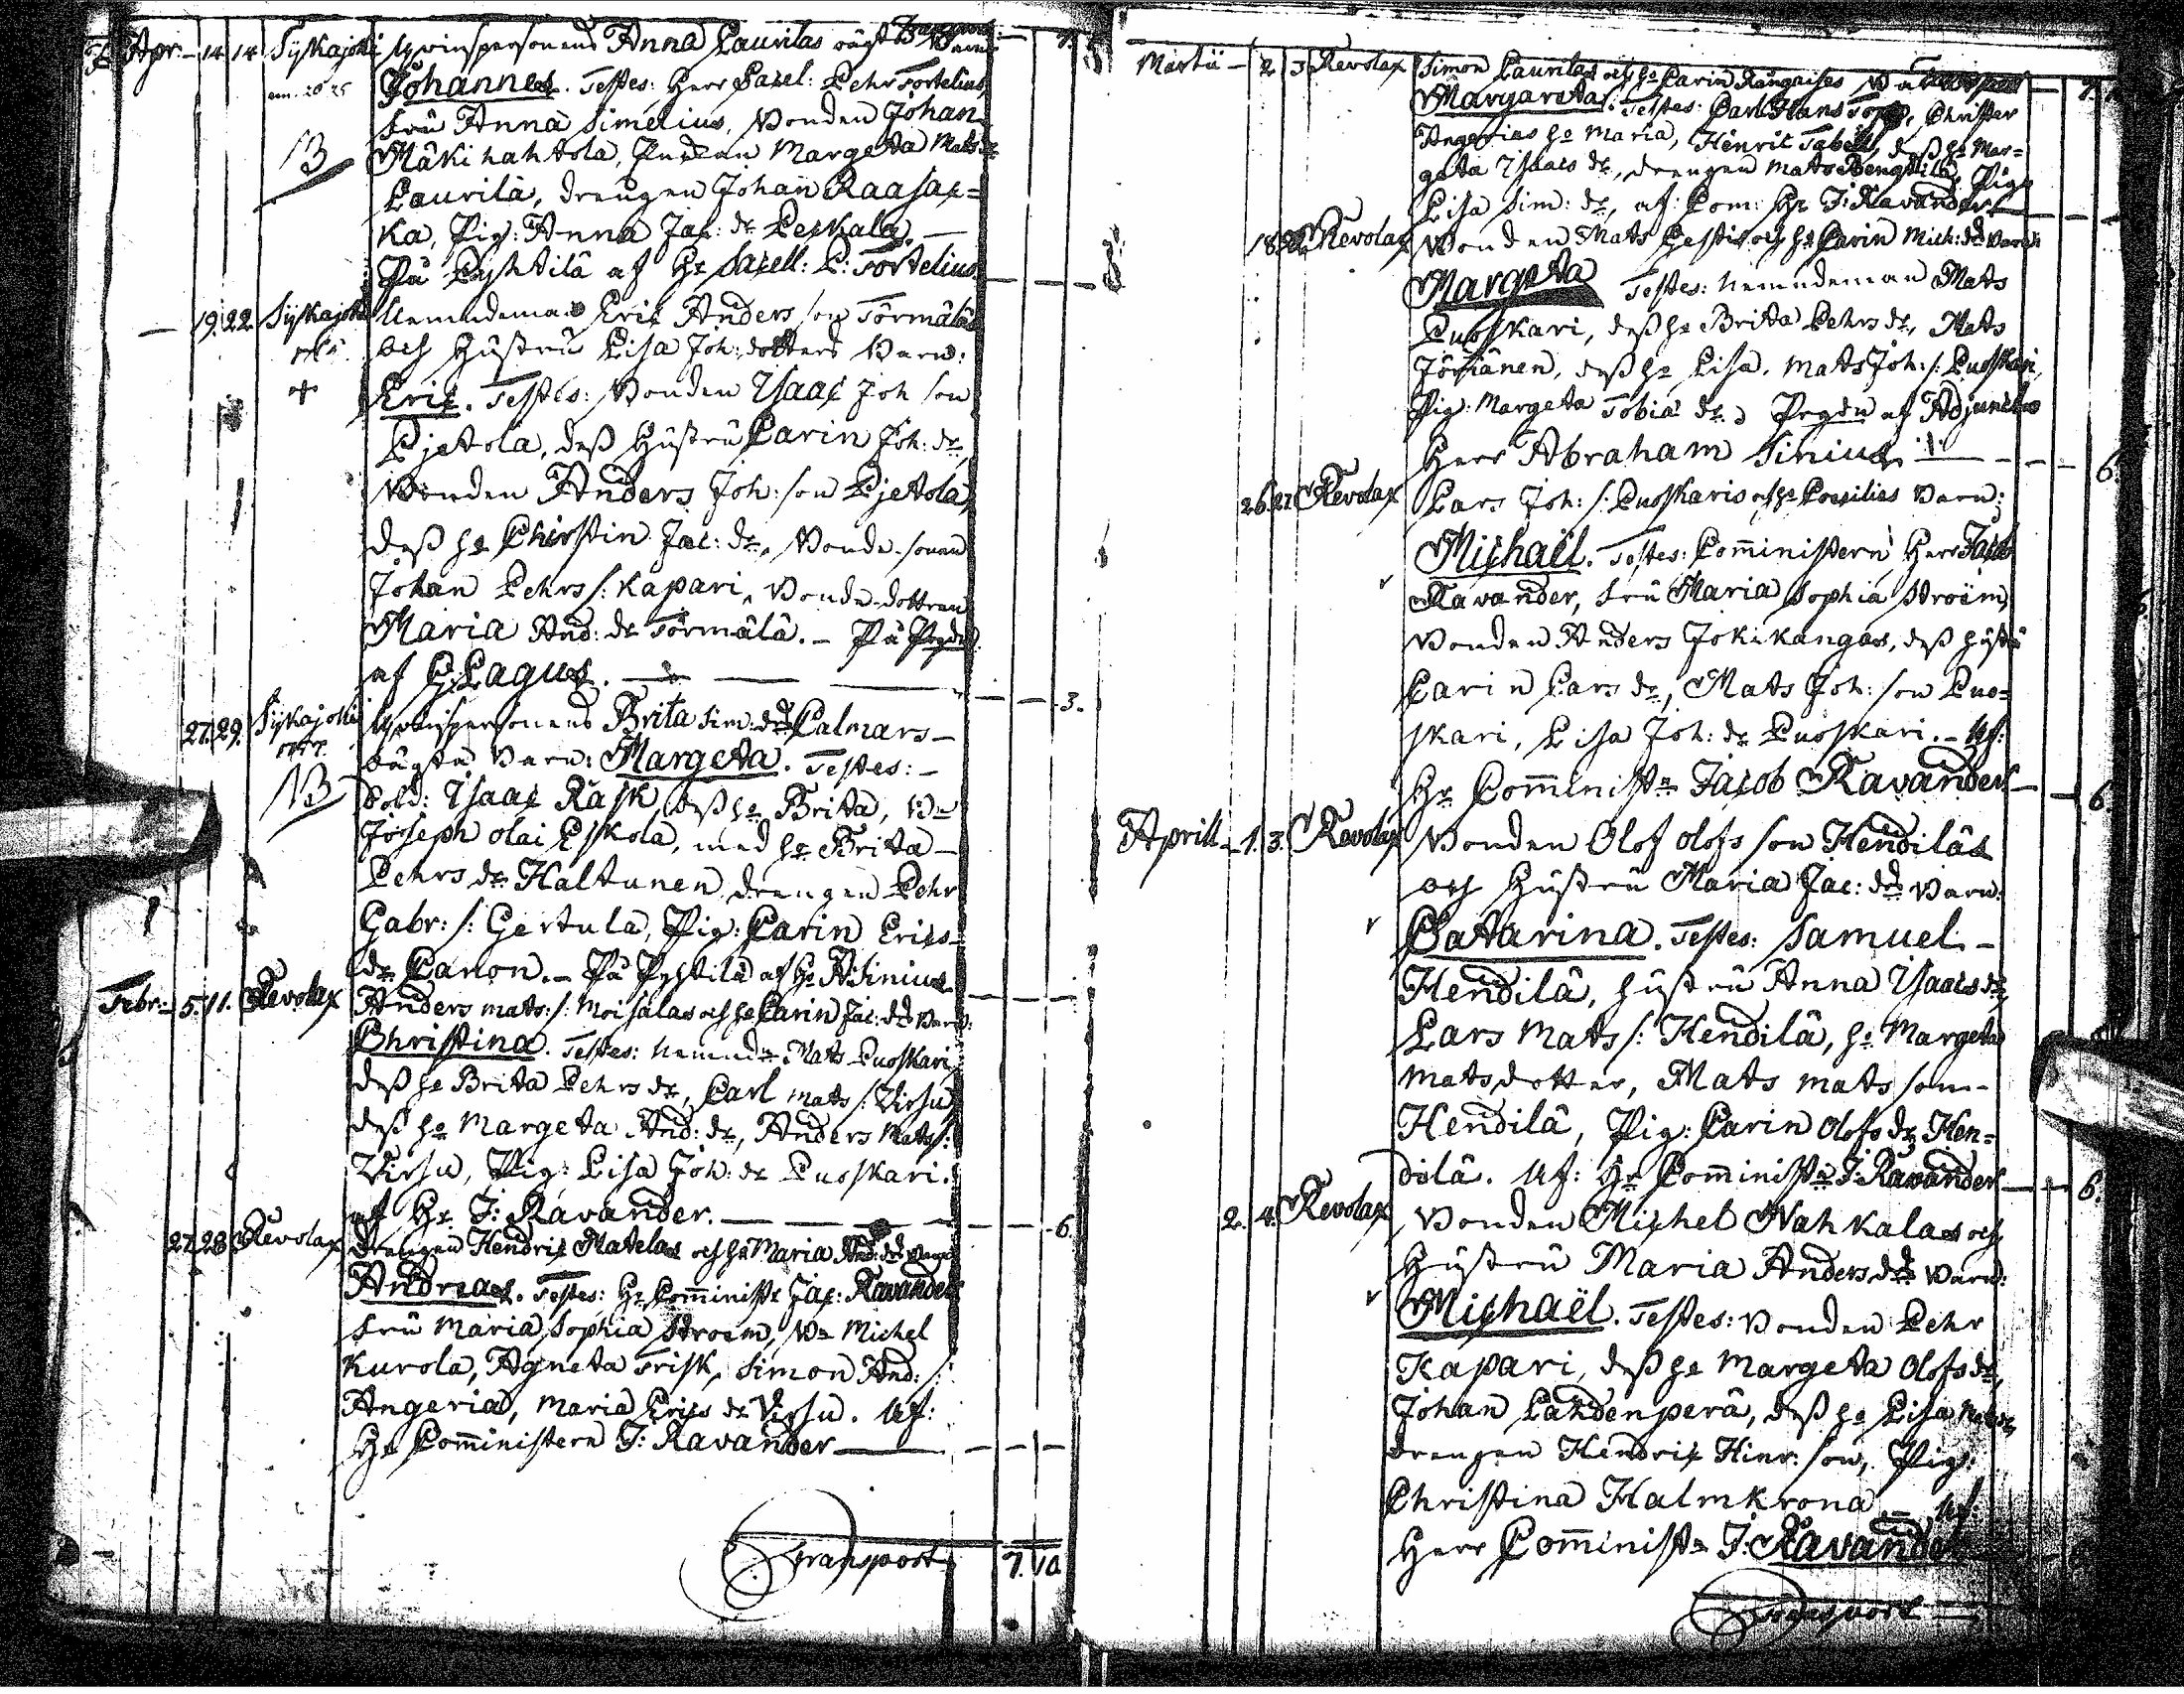 Apr: 14 14 Sijkajoki qvinspersonens Anna Laurilas oägta Barn:
Johannes. Testes: Herr Sacel: Pehr Tortelius,
fru Anna Simelius, Bonden Johan
NB Mäkihahtola, Margeta Mats dr
Laurilä, drengen Johan Raasak=
ka, Pig: Anna Jac: dr Peskala. —
På Pyhtilä af Hr Sacell: P: Tortelius
19. 22. Sijkajoki Nemndeman Eric Anders son Törmäläs
och Hustru Lisa Joh: dotters Barn:
Eric. Testes: Bonden Isaac Joh son
Pjetola, dess Hustru Carin Joh: dr,
Bonden Anders Joh: son Pjetola,
dess ho Chirstin Jac: dr, Bonde-sonen
Johan Pehrs s: Kapari, Bonde-dottren
Maria And: dr Törmälä. — På Prgdn
af G: Lagus. — 3.
27. 29. Sijkajoki qvinspersonens Brita Sim: drs Palmars
oägta Barn: Margeta. Testes: —
NB Sold: Isaac Rask dess ho Brita, Bn
Joseph Olai Eskola, med ho Brita —
Pehrs dr Haltunen drengen Pehr
Gabr: s: Gertula, Pig: Carin Erics
dr Canon. — På Pyhtilä af Hr A: Sinius
Febr: 5. 11. Revolax Anders Mats: s: Moisalas och ho Carin Jac: drs Barn:
Christina. Testes: Nemndn Mats Puoskari,
dess ho Brita Pehrs dr, Carl Mats s: Virsu
dess ho Margeta And: dr, Anders Mats s:
Virsu, Pig: Lisa Joh: dr Puoskari.
af Hr J: Kavander. — 6
27. 28 Revolax Drengen Hendric Matelas och ho Maria And: drs Barn
Andreas. Testes: Hr Comministr Jac: Kavander
fru Maria Sophia Ström, Bn Michel
Kurola, Agneta Frisk, Simon And: s:
Angeria, Maria Erics dr Virsu. Af:
Hr Comministern J: Kavander —
Transport 7. 10
Martii — 2 3 Revolax Simon Laurilas och ho Carin Kangaises 7.
Margareta. Testes: Carl Hans, Christer
Angerias ho Maria, Henric Tabell, dess ho Mar=
geta Isaacs dr, drengen Mats Bengtilä, Pig:
Lisa Sim: dr, af: Com: Hr J: Kavander
18. Revolax Bonden Mats och ho Carin Mich: drs Barn
Margeta Testes: Nemndeman Mats
Puoskari, dess ho Brita Pehrs dr, Mats
dess ho Lisa, Mats Joh: s: Puoskari,
Pig: Margeta Tobiæ dr, Prgdn af Adjuncten
Herr Abraham Sinius. — 6.
26. 27. Revolax Lars Joh: s: Puoskaris och ho Cecilias Barn:
Michaël. Testes: Comministern Herr Jacob
Kavander, fru Maria Sophia Ström,
Bonden Anders Jokikangas, dess Hustru
Carin Lars dr, Mats Joh: son Puo=
skari, Lisa Joh: dr Puoskari. — Af:
Hr Comministr Jacob Kavander — 6
Aprill — 1. 3. Revolax Bonden Olof Olofs son Hendiläs
och Hustru Maria Jac: drs Barn:
Catarina. Testes: Samuel —
Hendilä, Hustru Anna Isaacs dr,
Lars Mats s: Hendilä, ho Margeta
Matsdotter, Mats Mats son —
Hendilä, Pig: Carin Olofs dr Hen=
dilä. Af: Hr Comministr J: Kavander — 6.
2. 4. Revolax Bonden Michel Nahkalas och
Hustru Maria Anders drs Barn:
Michaël. Testes: Bonden Pehr
Kapari, dess ho Margeta Olofs dr,
Johan Lahdenperä, dess ho Lisa Mats dr,
drengen Hendric Hinr: son, Pig:
Christina Halmkrona — Af:
Herr Comministr J: Kavander
Transport